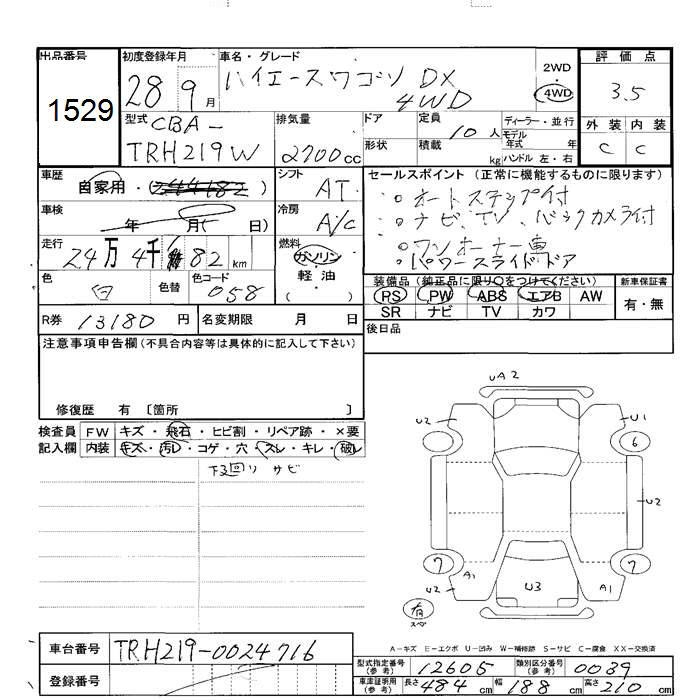 出品番号 初度登録年月 車名・グレード 2WD 評価点
1529 28 9月 ハイエースワゴン DX ・ 4WD 3.5
4WD
型式 CBA- 排気量 ドア 定員 10人 ディーラー・並行 外装 内装
モデル年式 年
TRH219W 2700cc 形状 積載 kg ハンドル 左・右 C C
車歴 自家用・( ) シフト AT セールスポイント (正常に機能するものに限ります)
。オートステップ付
車検 年 月( 日) 冷房 A/C 。ナビ、TV、バックカメラ付
走行 24万4千 82km 燃料 ガソリン 。ワンオーナー車
・軽・油 。パワースライドドア
色 白 色替 色コード 058 ( ) 装備品(純正品に限り○をつけてください) 新車保証書
PS PW ABS エアB AW 有・無
R券 13180円 名変期限 月 日 SR ナビ TV カワ
注意事項申告欄(不具合内容等は具体的に記入して下さい) 後日品
修復歴 有 〔箇所 〕
検査員 FW キズ・飛石・ヒビ割・リペア跡・×要
記入欄 内装 キズ・汚レ・コゲ・穴・スレ・キレ・破レ
下廻り サビ
UA2
U2 U1
6
U2
7 7
U2 A1 U3 A1
有
スペ
A-キズ E-エクボ U-凹み W-補修跡 S-サビ C-腐食 XX-交換済
車台番号 TRH219-0024716
型式指定番号(参考) 12605 類別区分番号(参考) 0039
登録番号
車庫証明用(参考) 長さ 484cm 幅 188cm 高さ 210cm